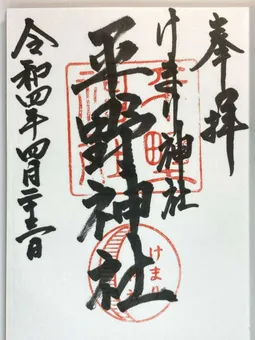 奉拝
けまり神社
平野神社
令和四年四月二十三日
けまり